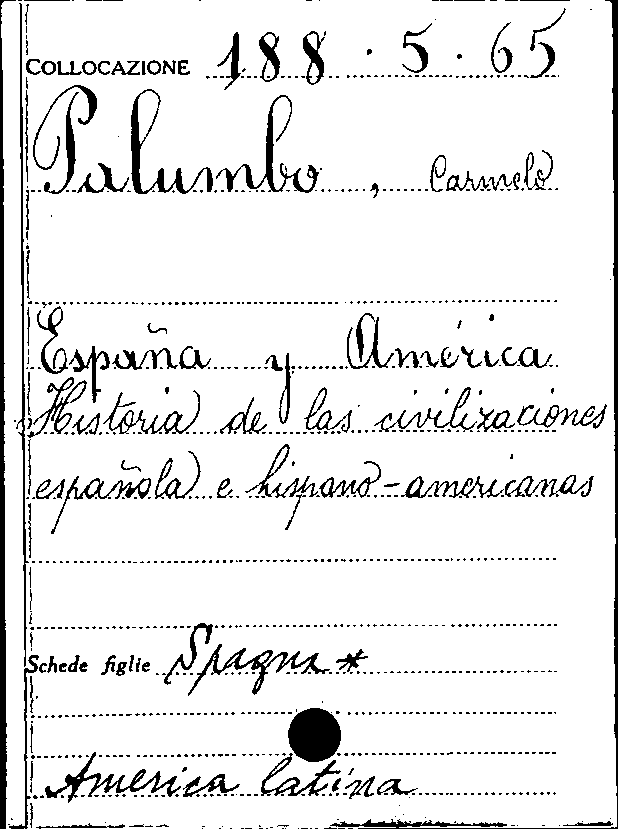 COLLOCAZIONE 188 · 5 · 65
Palumbo, Carmelo
España y América
Historia de las civilizaciones
española e hispano-americanas
Schede figlie Spagna *
America latina